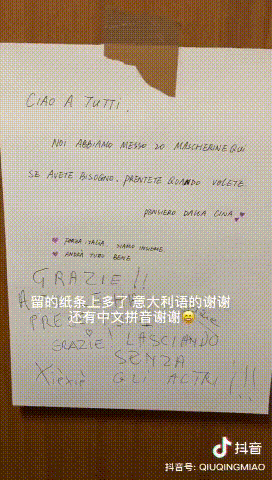 CIAO A TUTTI.
NOI ABBIAMO MESSO 20 MASCHERINE QUI
SE AVETE BISOGNO, PRENTETE QUANDO VOLETE
PENSIERO DALLA CINA
FORZA ITALIA, SIAMO INSIEME
ANDRA TUTO BENE
GRAZIE!!
留的纸条上多了意大利语的谢谢
还有中文拼音谢谢
GRAZIE LASCIANDO
SENZA
Xièxiè GLI ALTRI!!!
抖音
抖音号: QIUQINGMIAO